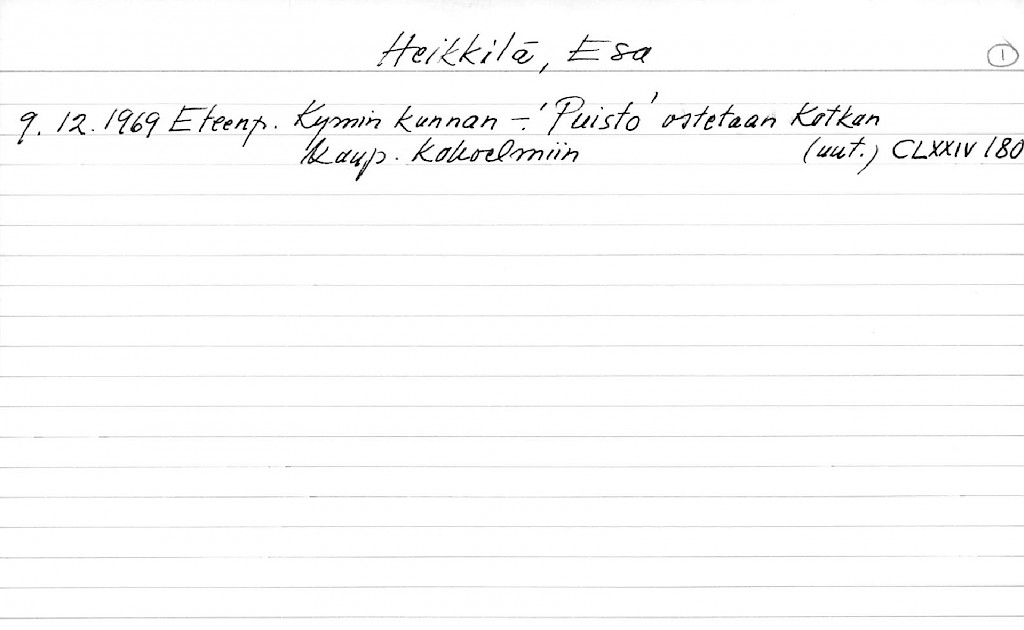 Heikkilä, Esa 1
9. 12. 1969 Eteenp. Kymin kunnan –: 'Puisto' ostetaan Kotkan
kaup. kokoelmiin (uut.) CLXXIV 180